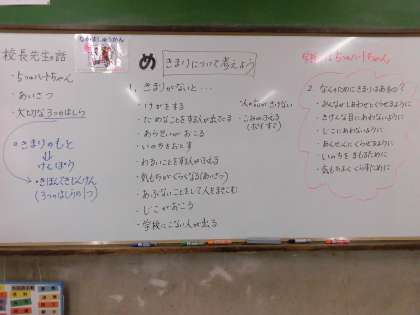 なかよしゅうかん
校長先生の話
・5つのハートちゃん
・あいさつ
・大切な3つのはしら
・きまりのもと
けんぽう
・きほんてきじんけん
(3つのはしらの1つ)
め きまりについて考えよう
1. きまりがないと…
・けがをする
・だめなことをする人が出てくる
・あらそいがおこる
・いのちをおとす
・わるいことをする人がふえる
・気もちがくらくなる(あいさつ)
・あぶないことをして人をまきこむ
・じこがおこる
・学校にこない人が出る
・人の話がきけない
・ごみがふえる
5つのハートちゃん
2. なんのためにきまりはあるの?
・みんながしあわせにくらせるように
・きけんな目にあわないように
・じこにあわないように
・あんぜんにくらせるように
・いのちをまもるために
・気もちよくくらすために